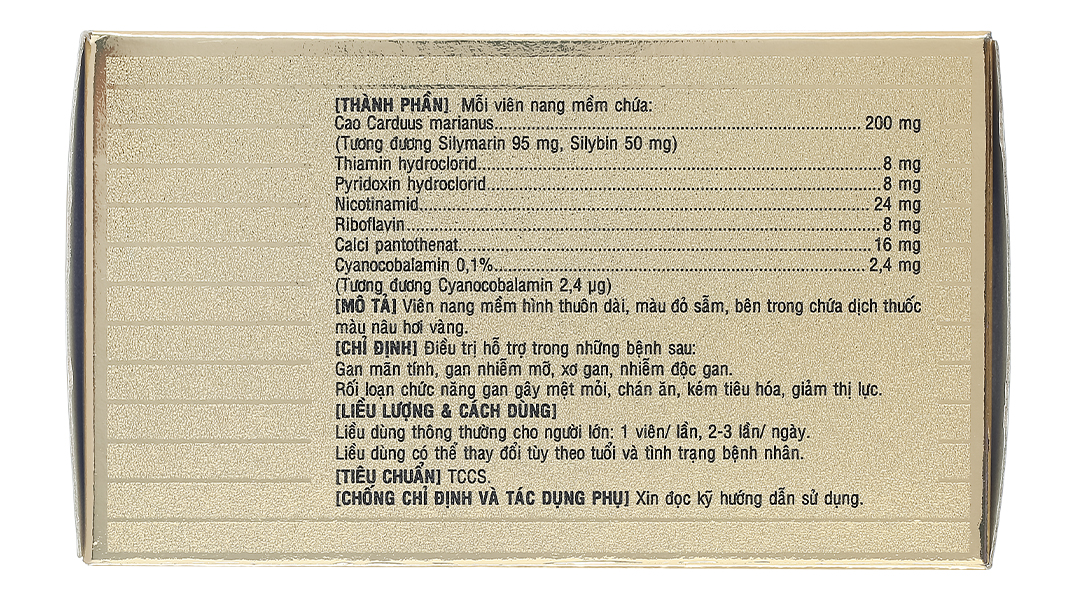 [THÀNH PHẦN] Mỗi viên nang mềm chứa:
Cao Carduus marianus.......... 200 mg
(Tương đương Silymarin 95 mg, Silybin 50 mg)
Thiamin hydroclorid.......... 8 mg
Pyridoxin hydroclorid.......... 8 mg
Nicotinamid.......... 24 mg
Riboflavin.......... 8 mg
Calci pantothenat.......... 16 mg
Cyanocobalamin 0,1%.......... 2,4 mg
(Tương đương Cyanocobalamin 2,4 µg)
[MÔ TẢ] Viên nang mềm hình thuôn dài, màu đỏ sẫm, bên trong chứa dịch thuốc
màu nâu hơi vàng.
[CHỈ ĐỊNH] Điều trị hỗ trợ trong những bệnh sau:
Gan mãn tính, gan nhiễm mỡ, xơ gan, nhiễm độc gan.
Rối loạn chức năng gan gây mệt mỏi, chán ăn, kém tiêu hóa, giảm thị lực.
[LIỀU LƯỢNG & CÁCH DÙNG]
Liều dùng thông thường cho người lớn: 1 viên/ lần, 2-3 lần/ ngày.
Liều dùng có thể thay đổi tùy theo tuổi và tình trạng bệnh nhân.
[TIÊU CHUẨN] TCCS.
[CHỐNG CHỈ ĐỊNH VÀ TÁC DỤNG PHỤ] Xin đọc kỹ hướng dẫn sử dụng.